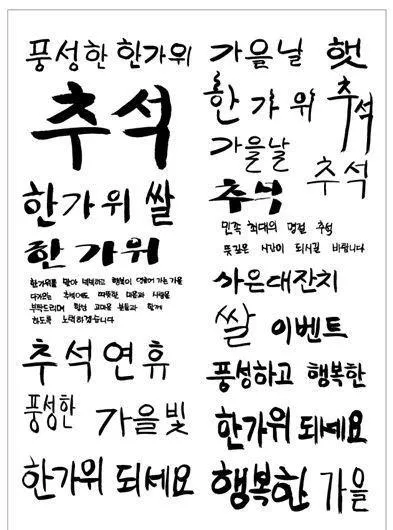 풍성한 한가위
추석
한가위 쌀
한가위
한가위를 맞아 넉넉하고 행복이 영글어 가는 가을
다가오는 추석에도 따뜻한 마음과 사랑을
부탁드리며 항상 고마운 분들과 함께
하도록 노력하겠습니다
추석연휴
풍성한 가을빛
한가위 되세요
가을날 햇
한가위 추석
가을날 추석
추석
민족 최대의 명절 추석
뜻깊은 시간이 되시길 바랍니다
사은대잔치
쌀 이벤트
풍성하고 행복한
한가위 되세요
행복한 가을